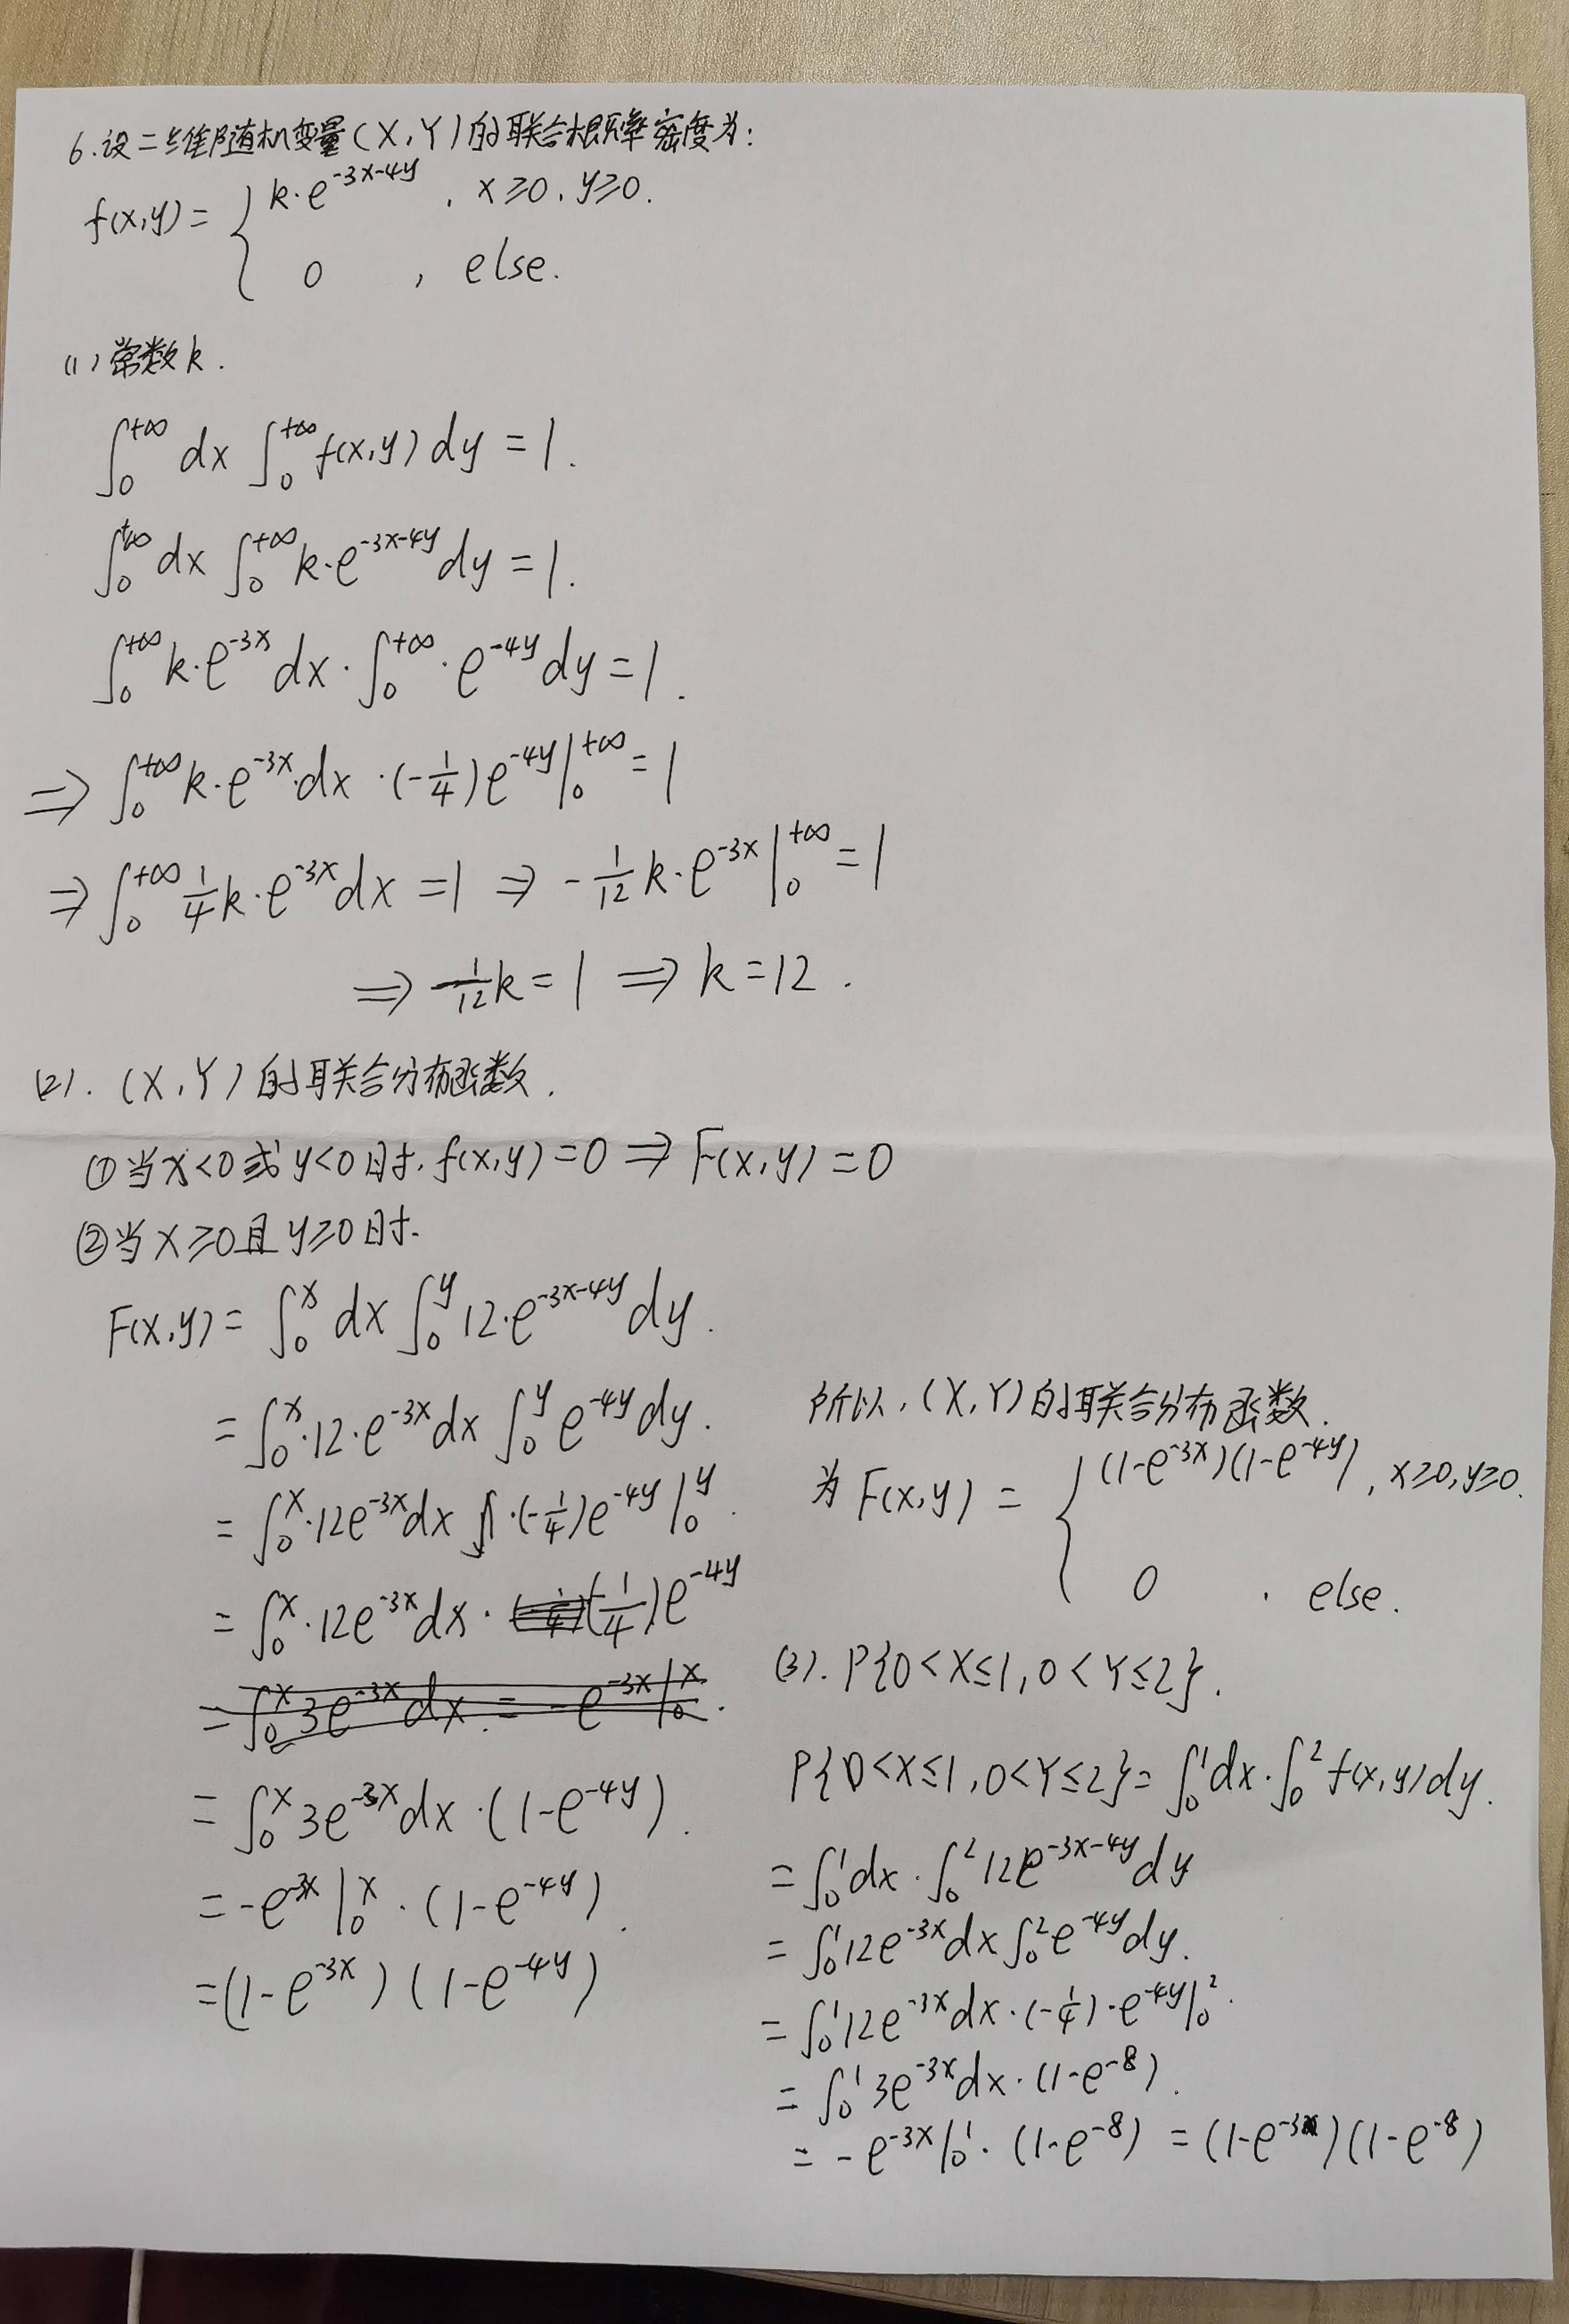 6.设二维随机变量(X,Y)的联合概率密度为:
f(x,y)= { k·e^{-3x-4y} , x≥0, y≥0.
0 , else.
(1)常数k.
∫_0^{+∞} dx ∫_0^{+∞} f(x,y) dy = 1.
∫_0^{+∞} dx ∫_0^{+∞} k·e^{-3x-4y} dy = 1.
∫_0^{+∞} k·e^{-3x} dx · ∫_0^{+∞} · e^{-4y} dy = 1.
⇒ ∫_0^{+∞} k·e^{-3x}·dx ·(-1/4)e^{-4y}|_0^{+∞} = 1
⇒ ∫_0^{+∞} 1/4 k·e^{-3x} dx = 1 ⇒ -1/12 k·e^{-3x}|_0^{+∞} = 1
⇒ 1/12 k = 1 ⇒ k = 12.
(2). (X,Y)的联合分布函数.
①当x<0或y<0时, f(x,y)=0 ⇒ F(x,y)=0
②当x≥0且y≥0时.
F(x,y)= ∫_0^x dx ∫_0^y 12·e^{-3x-4y} dy.
= ∫_0^x ·12·e^{-3x} dx ∫_0^y e^{-4y} dy.
= ∫_0^x ·12e^{-3x} dx ·(-1/4)e^{-4y}|_0^y.
= ∫_0^x ·12e^{-3x} dx · (-1/4)e^{-4y}
= ∫_0^x 3e^{-3x} dx = -e^{-3x}|_0^x.
= ∫_0^x 3e^{-3x} dx ·(1-e^{-4y}).
= -e^{-3x}|_0^x · (1-e^{-4y}).
=(1-e^{-3x})(1-e^{-4y})
所以, (X,Y)的联合分布函数.
为 F(x,y) = { (1-e^{-3x})(1-e^{-4y}), x≥0, y≥0.
0 , else.
(3). P{0<X≤1, 0<Y≤2}.
P{0<X≤1, 0<Y≤2}= ∫_0^1 dx·∫_0^2 f(x,y) dy.
= ∫_0^1 dx · ∫_0^2 12e^{-3x-4y} dy
= ∫_0^1 12e^{-3x} dx ∫_0^2 e^{-4y} dy.
= ∫_0^1 12e^{-3x} dx ·(-1/4)·e^{-4y}|_0^2.
= ∫_0^1 3e^{-3x} dx ·(1-e^{-8}).
= -e^{-3x}|_0^1 · (1-e^{-8}) = (1-e^{-3})(1-e^{-8})